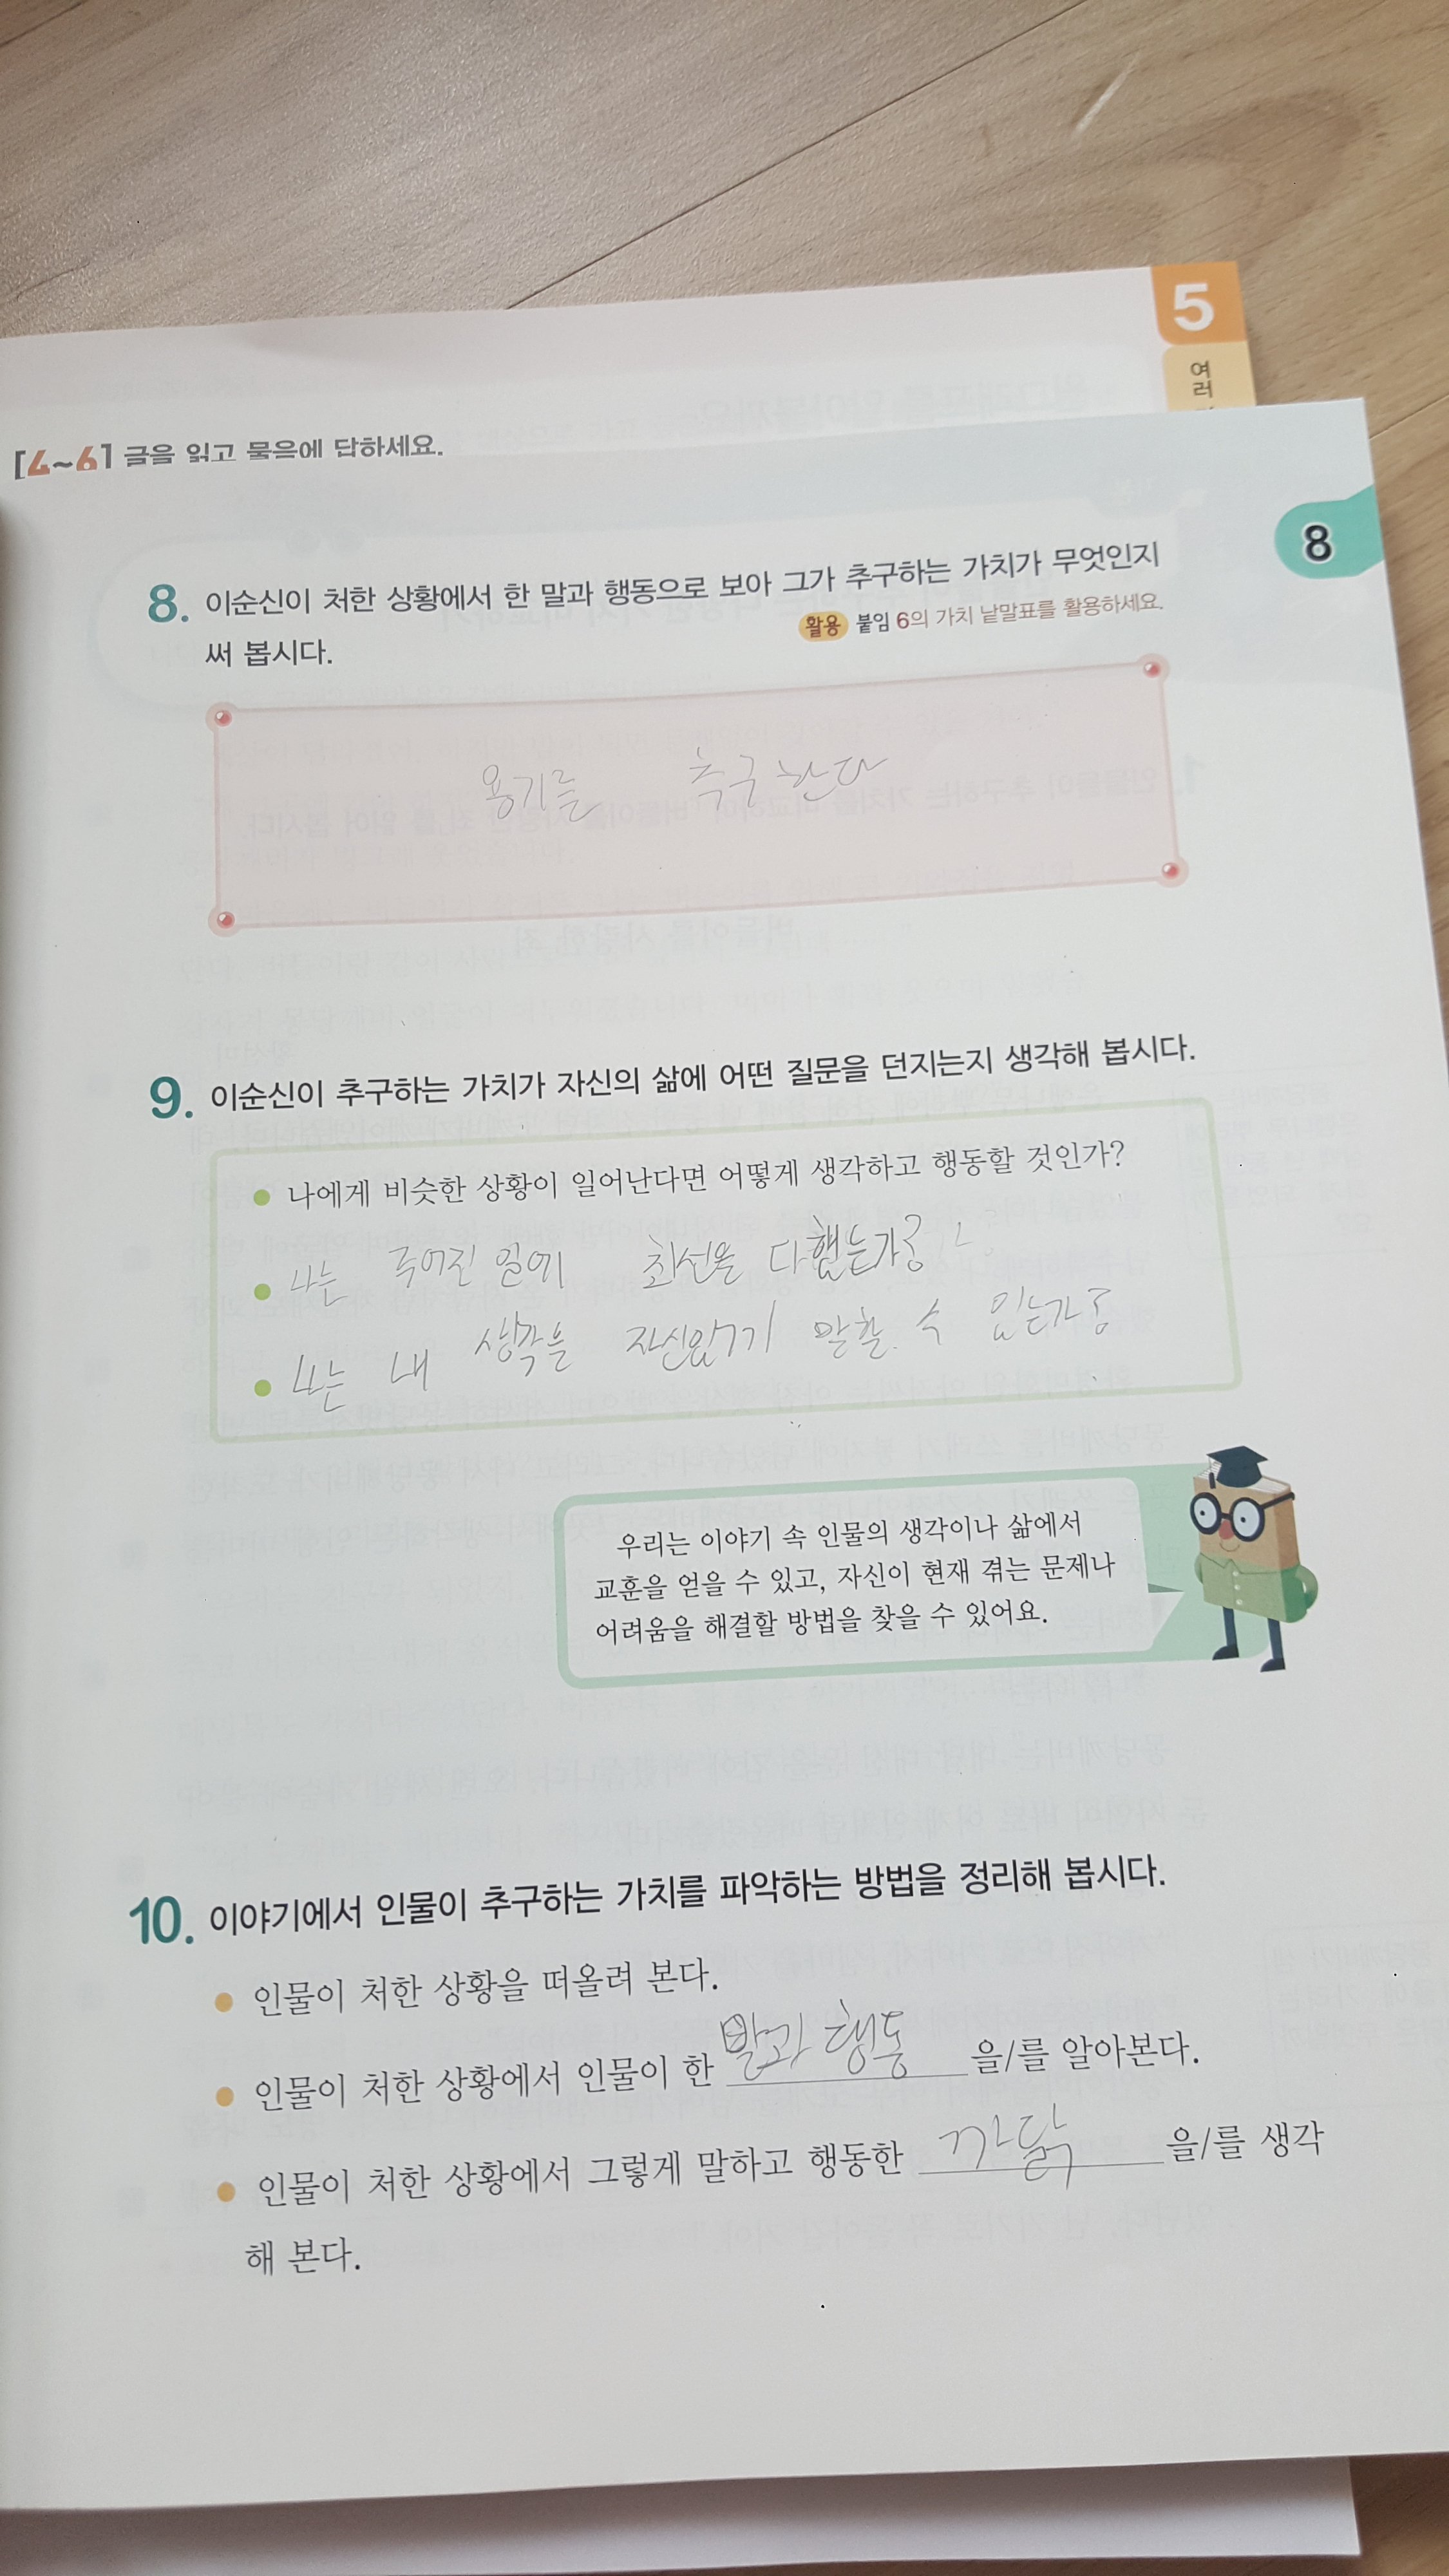 5
여
러
[4~6] 글을 읽고 물음에 답하세요.
8
8. 이순신이 처한 상황에서 한 말과 행동으로 보아 그가 추구하는 가치가 무엇인지
써 봅시다.
활용 붙임 6의 가치 낱말표를 활용하세요.
용기를 추구한다
9. 이순신이 추구하는 가치가 자신의 삶에 어떤 질문을 던지는지 생각해 봅시다.
● 나에게 비슷한 상황이 일어난다면 어떻게 생각하고 행동할 것인가?
● 나는 주어진 일에 최선을 다했는가?
● 나는 내 생각을 자신있게 말할 수 있는가?
우리는 이야기 속 인물의 생각이나 삶에서
교훈을 얻을 수 있고, 자신이 현재 겪는 문제나
어려움을 해결할 방법을 찾을 수 있어요.
10. 이야기에서 인물이 추구하는 가치를 파악하는 방법을 정리해 봅시다.
● 인물이 처한 상황을 떠올려 본다.
● 인물이 처한 상황에서 인물이 한 말과 행동 을/를 알아본다.
● 인물이 처한 상황에서 그렇게 말하고 행동한 까닭 을/를 생각
해 본다.